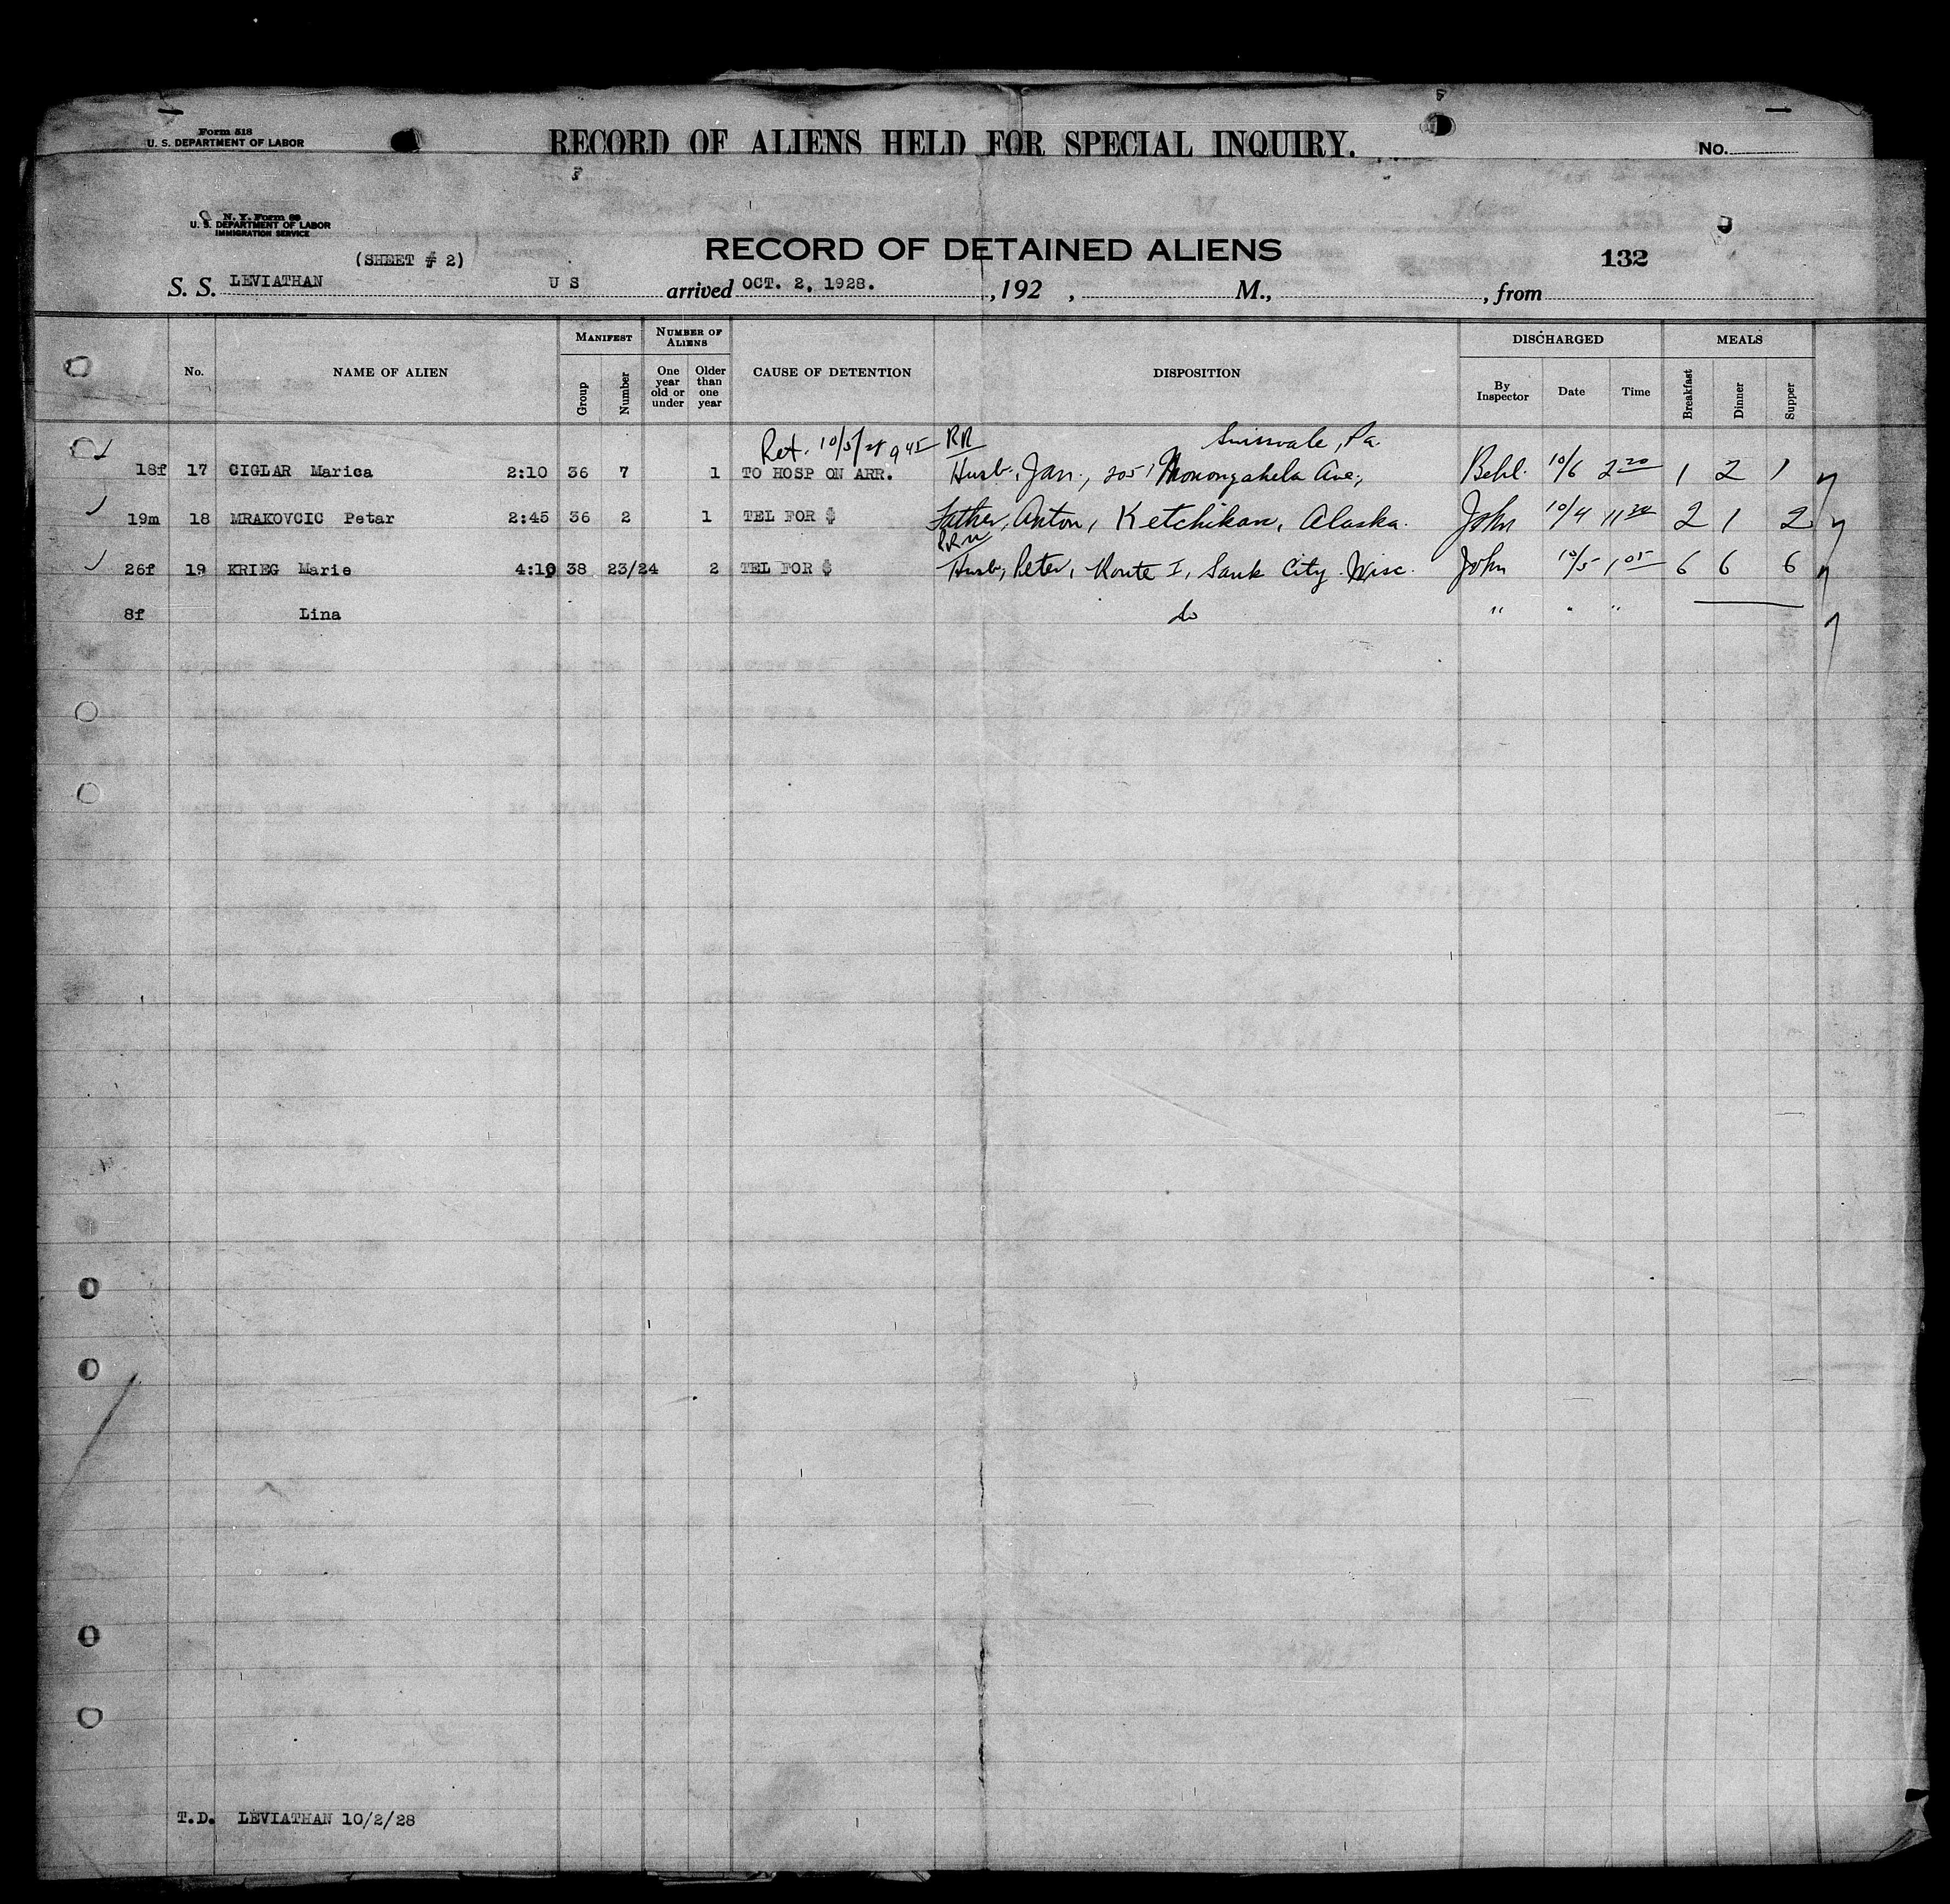 Form 518
U. S. DEPARTMENT OF LABOR
RECORD OF ALIENS HELD FOR SPECIAL INQUIRY.
No.
N. Y. Form 99
U. S. DEPARTMENT OF LABOR
IMMIGRATION SERVICE
RECORD OF DETAINED ALIENS
132
(SHEET # 2)
S. S. LEVIATHAN U S arrived OCT. 2, 1928. , 192 , M., , from
MANIFEST NUMBER OF ALIENS DISCHARGED MEALS
No. NAME OF ALIEN Group Number One year old or under Older than one year CAUSE OF DETENTION DISPOSITION By Inspector Date Time Breakfast Dinner Supper
Ret. 10/5/28 9 45 RR Swissvale, Pa.
18f 17 CIGLAR Marica 2:10 36 7 1 TO HOSP ON ARR. Husb, Jan, 2051 Monongahela Ave, Behl. 10/6 2 20 1 2 1
19m 18 MRAKOVCIC Petar 2:45 36 2 1 TEL FOR $ Father, Anton, Ketchikan, Alaska. John 10/4 11 2 1 2
26f 19 KRIEG Marie 4:10 38 23/24 2 TEL FOR $ Husb, Peter, Route I, Sauk City Wisc. John 10/5 1 05 6 6 6
8f Lina do " " "
T.D. LEVIATHAN 10/2/28